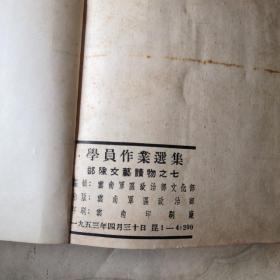 學員作業選集
部隊文藝讀物之七
編輯：雲南軍區政治部文化部
出版：雲南軍區政治部
印刷：雲南印刷廠
一九五三年四月三十日 昆1—4:200